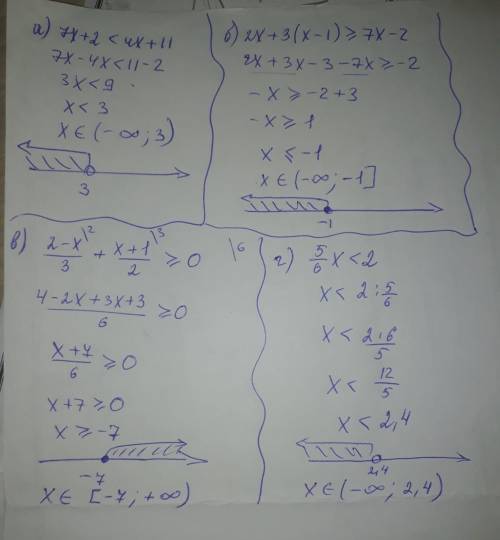 а) 7x+2<4x+11
7x-4x<11-2
3x<9
x<3
x∈(-∞; 3)
3
б) 2x+3(x-1)≥7x-2
2x+3x-3-7x≥-2
-x≥-2+3
-x≥1
x≤-1
x∈(-∞; -1]
-1
в) (2-x)/3 \2 + (x+1)/2 \3 ≥0 \6
(4-2x+3x+3)/6 ≥0
(x+7)/6 ≥0
x+7≥0
x≥-7
-7
x∈[-7; +∞)
г) 5/6 x<2
x<2:5/6
x<(2·6)/5
x<12/5
x<2,4
2,4
x∈(-∞; 2,4)